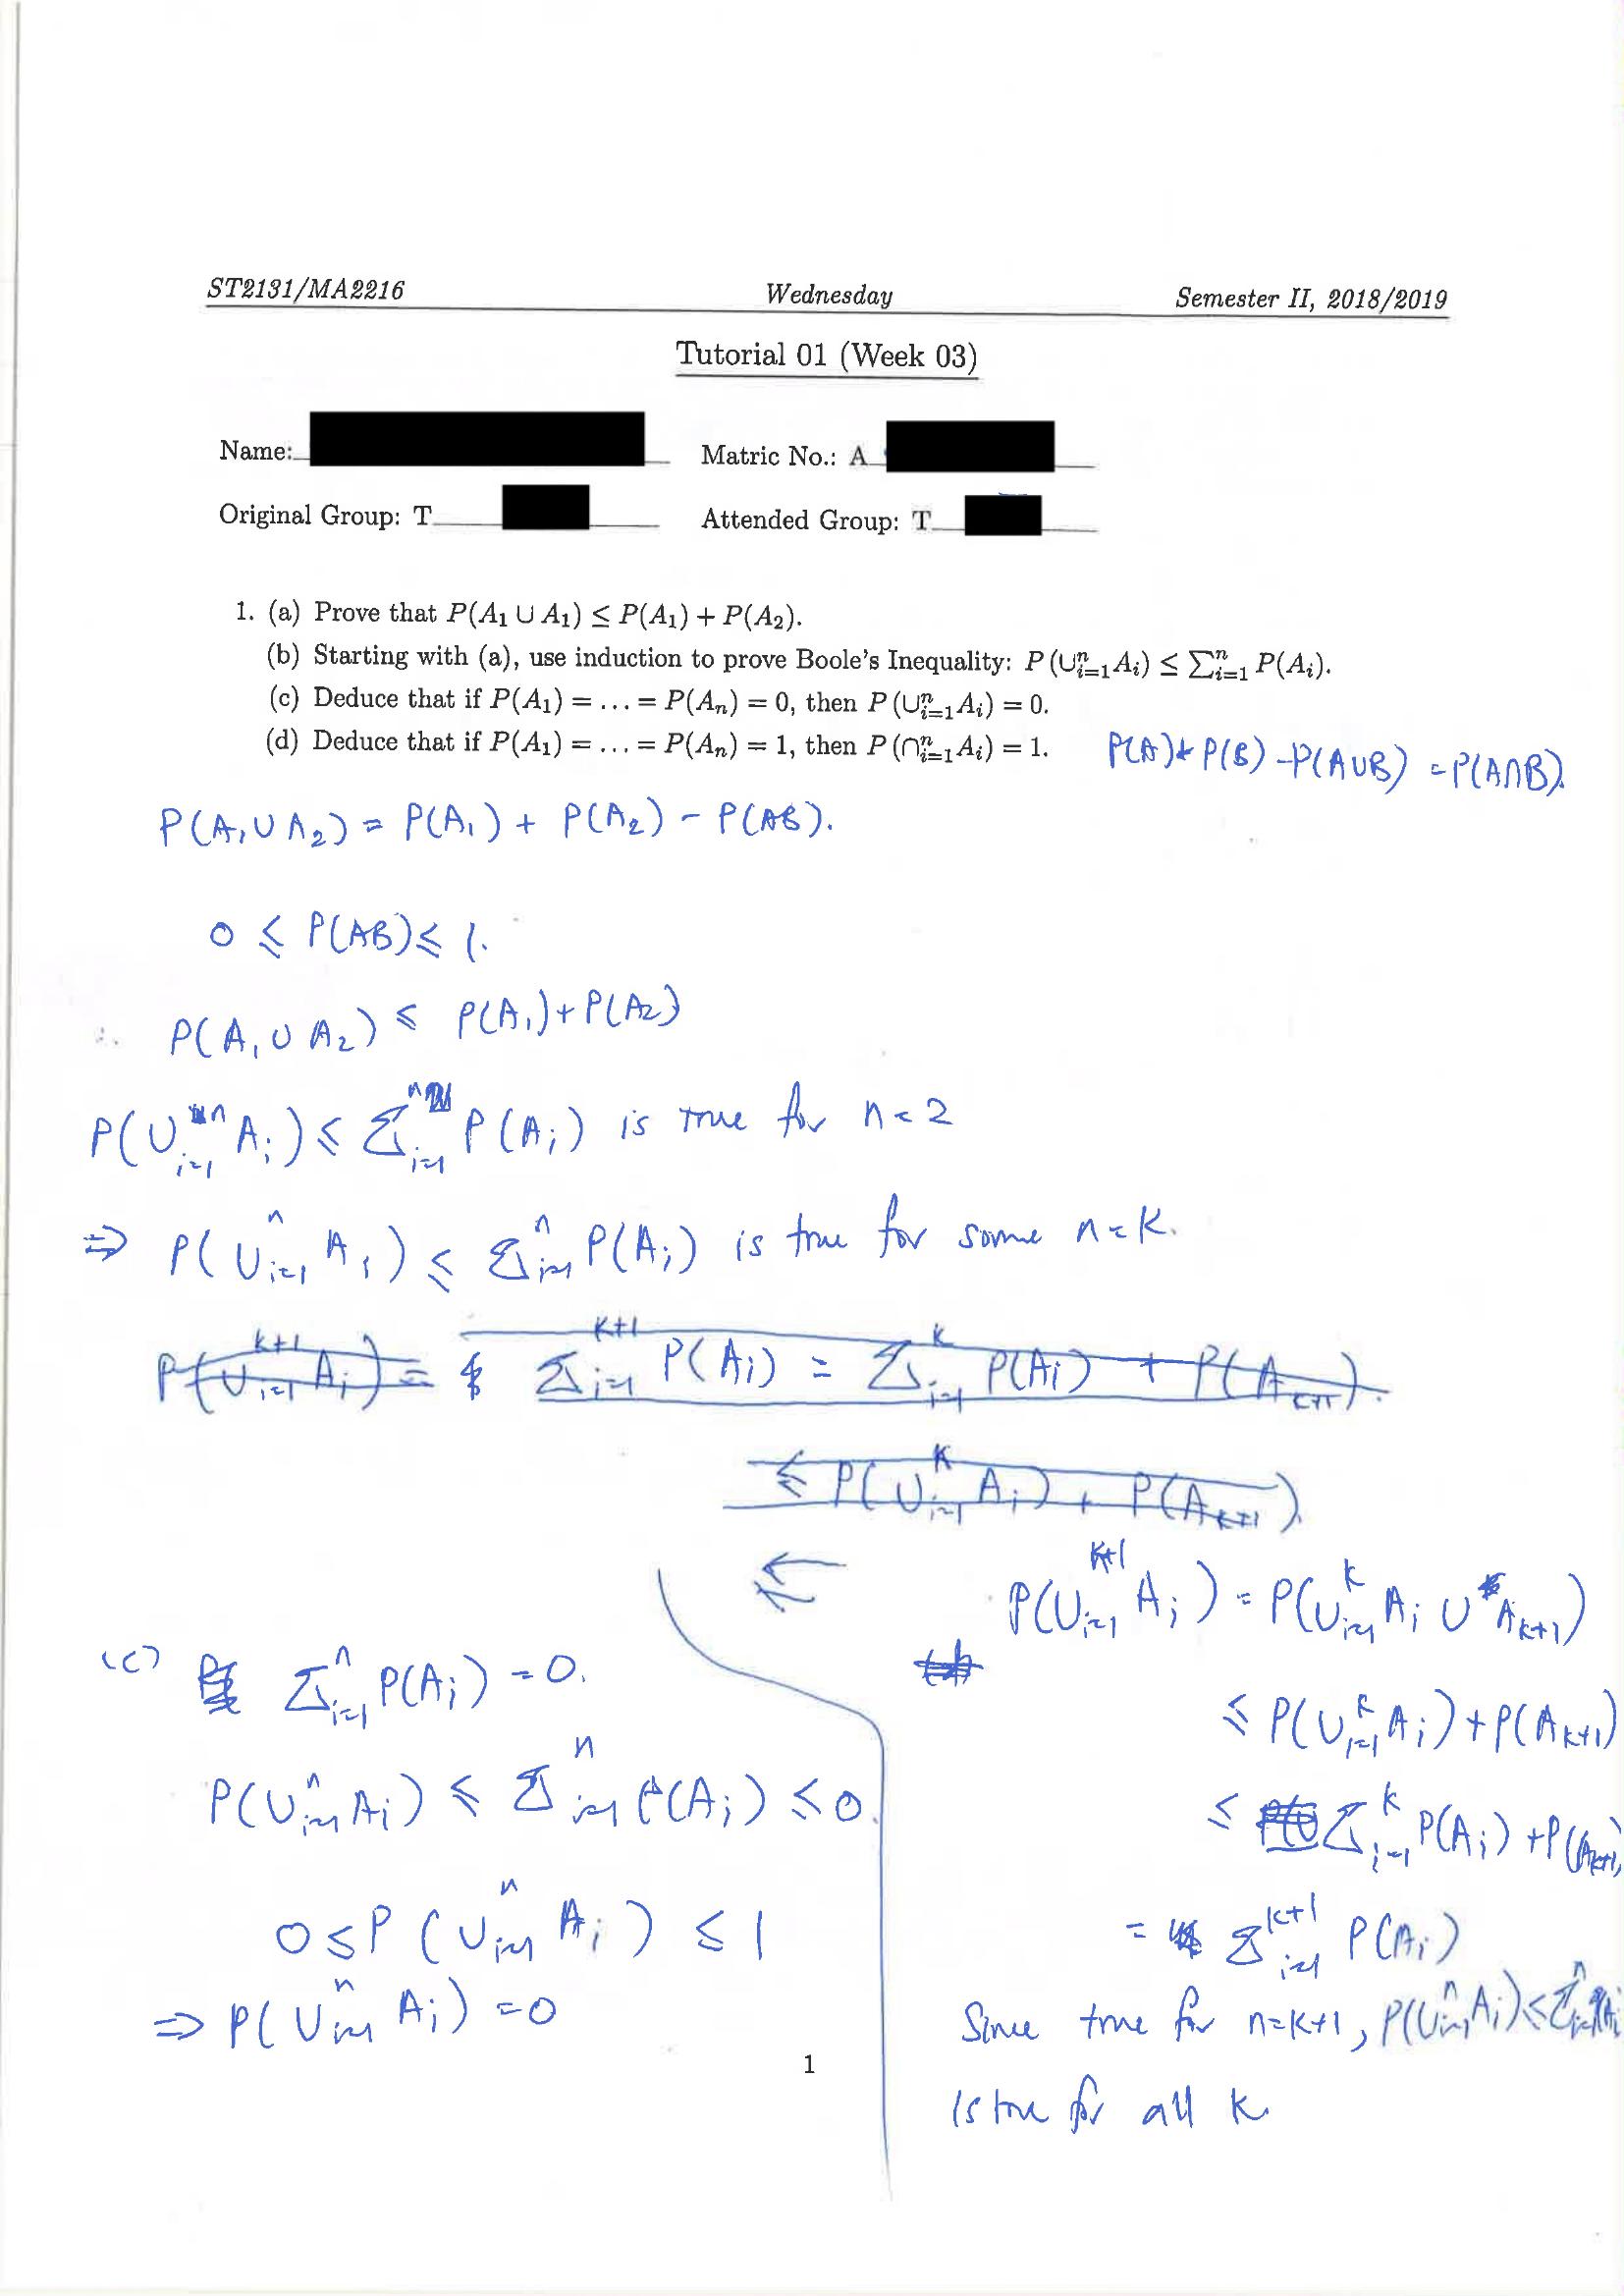 ST2131/MA2216 Wednesday Semester II, 2018/2019
Tutorial 01 (Week 03)
Name: Matric No.: A
Original Group: T Attended Group: T
1. (a) Prove that P(A₁ ∪ A₁) ≤ P(A₁) + P(A₂).
(b) Starting with (a), use induction to prove Boole's Inequality: P (∪ⁿᵢ₌₁Aᵢ) ≤ ∑ⁿᵢ₌₁ P(Aᵢ).
(c) Deduce that if P(A₁) = ... = P(Aₙ) = 0, then P (∪ⁿᵢ₌₁Aᵢ) = 0.
(d) Deduce that if P(A₁) = ... = P(Aₙ) = 1, then P (∩ⁿᵢ₌₁Aᵢ) = 1.
P(A) + P(B) - P(A∪B) = P(A∩B).
P(A₁ ∪ A₂) = P(A₁) + P(A₂) - P(AB).
0 ≤ P(AB) ≤ 1.
∴ P(A₁ ∪ A₂) ≤ P(A₁) + P(A₂)
P(∪ⁿᵢ₌₁ Aᵢ) ≤ ∑ⁿᵢ₌₁ P(Aᵢ) is true for n = 2
⇒ P(∪ⁿᵢ₌₁ Aᵢ) ≤ ∑ⁿᵢ₌₁ P(Aᵢ) is true for some n = k.
P(∪ᵏ⁺¹ᵢ₌₁ Aᵢ) = ∑ᵏ⁺¹ᵢ₌₁ P(Aᵢ) = ∑ᵏᵢ₌₁ P(Aᵢ) + P(Aₖ₊₁).
≤ P(∪ᵏᵢ₌₁ Aᵢ) + P(Aₖ₊₁).
P(∪ᵏ⁺¹ᵢ₌₁ Aᵢ) = P(∪ᵏᵢ₌₁ Aᵢ ∪ Aₖ₊₁)
≤ P(∪ᵏᵢ₌₁ Aᵢ) + P(Aₖ₊₁)
≤ ∑ᵏᵢ₌₁ P(Aᵢ) + P(Aₖ₊₁)
= ∑ᵏ⁺¹ᵢ₌₁ P(Aᵢ)
Since true for n=k+1, P(∪ⁿᵢ₌₁ Aᵢ) ≤ ∑ⁿᵢ₌₁ P(Aᵢ
is true for all k
(c) ∑ⁿᵢ₌₁ P(Aᵢ) = 0.
P(∪ⁿᵢ₌₁ Aᵢ) ≤ ∑ⁿᵢ₌₁ P(Aᵢ) ≤ 0.
0 ≤ P(∪ⁿᵢ₌₁ Aᵢ) ≤ 1
⇒ P(∪ⁿᵢ₌₁ Aᵢ) = 0
1